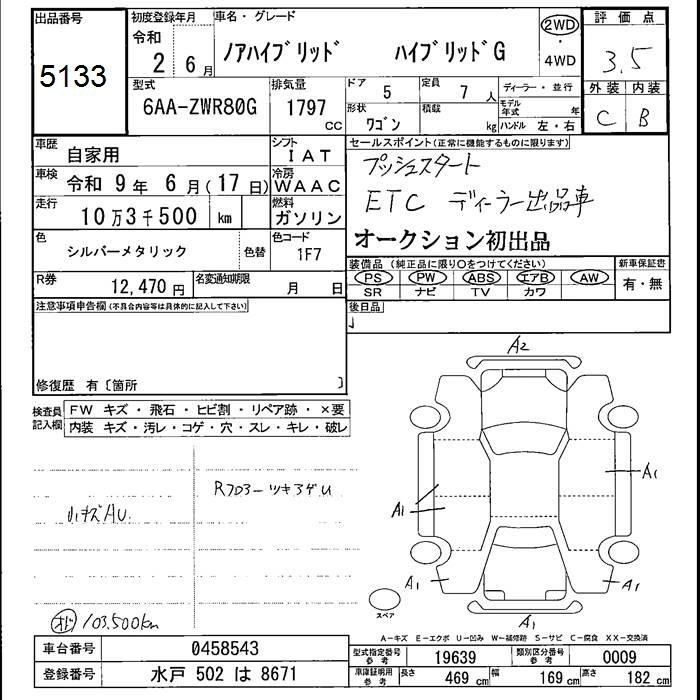 出品番号
5133
初度登録年月
令和
2 6月
車名・グレード
ノアハイブリッド ハイブリッドG
2WD
・
4WD
評価点
3.5
外装 内装
C B
型式
6AA-ZWR80G
排気量
1797
cc
ドア
5
定員
7 人
形状
ワゴン
積載
kg
ディーラー・並行
モデル年式 年
ハンドル 左・右
車歴
自家用
シフト
IAT
車検
令和 9年 6月(17日)
冷房
WAAC
走行
10万3千500 km
燃料
ガソリン
色
シルバーメタリック
色替
色コード
1F7
R券
12,470円
名変通知期限
月 日
セールスポイント(正常に機能するものに限ります)
プッシュスタート
ETC ディーラー出品車
オークション初出品
装備品(純正品に限り○をつけてください)
PS PW ABS エアB AW
SR ナビ TV カワ
新車保証書
有・無
後日品
注意事項申告欄(不具合内容等は具体的に記入して下さい)
修復歴 有〔箇所 〕
検査員記入欄
FW キズ・飛石・ヒビ割・リペア跡・×要
内装 キズ・汚レ・コゲ・穴・スレ・キレ・破レ
小キズAU.
RフロアーツキアゲU
オド 103,500km
A2
A1
A1
A1
A1
A1
スペア
A-キズ E-エクボ U-凹み W-補修跡 S-サビ C-腐食 XX-交換済
車台番号
0458543
登録番号
水戸 502 は 8671
型式指定番号
参考
19639
類別区分番号
参考
0009
車庫証明用
参考
長さ
469 cm
幅
169 cm
高さ
182 cm